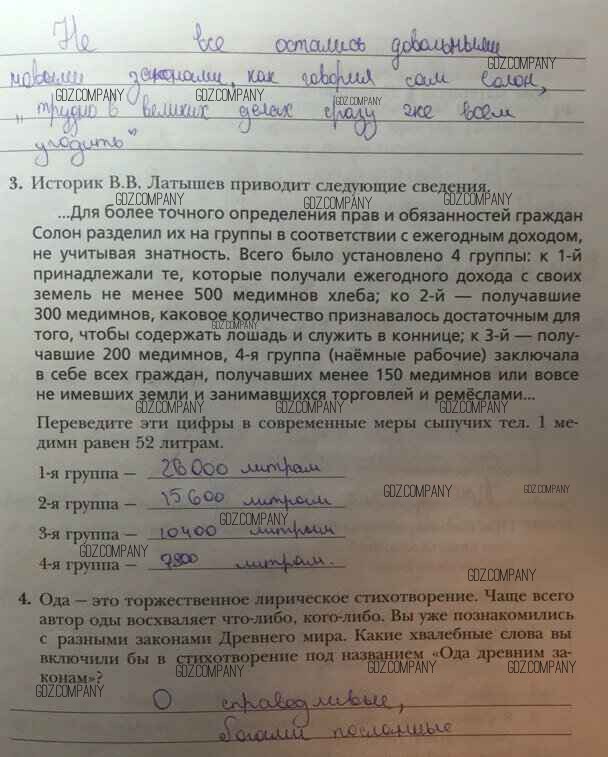 Не все остались довольными
новыми законами, как говорил сам Солон,
GDZ.COMPANY
GDZ.COMPANY GDZ.COMPANY GDZ.COMPANY
„трудно в великих делах сразу же всем
угодить"
3. Историк В.В. Латышев приводит следующие сведения.
GDZ.COMPANY GDZ.COMPANY
...Для более точного определения прав и обязанностей граждан
Солон разделил их на группы в соответствии с ежегодным доходом,
GDZ.COMPANY GDZ.COMPANY
не учитывая знатность. Всего было установлено 4 группы: к 1-й
принадлежали те, которые получали ежегодного дохода с своих
земель не менее 500 медимнов хлеба; ко 2-й — получавшие
300 медимнов, каковое количество признавалось достаточным для
GDZ.COMPANY
того, чтобы содержать лошадь и служить в коннице; к 3-й — полу-
чавшие 200 медимнов, 4-я группа (наёмные рабочие) заключала
в себе всех граждан, получавших менее 150 медимнов или вовсе
не имевших земли и занимавшихся торговлей и ремёслами...
GDZ.COMPANY GDZ.COMPANY GDZ.COMPANY
Переведите эти цифры в современные меры сыпучих тел. 1 ме-
димн равен 52 литрам.
1-я группа — 26000 литрам
2-я группа — 15600 литрам
GDZ.COMPANY GDZ.COMPANY
GDZ.COMPANY
3-я группа — 10400 литрам
GDZ.COMPANY
4-я группа — 7800 литрам.
GDZ.COMPANY
4. Ода — это торжественное лирическое стихотворение. Чаще всего
автор оды восхваляет что-либо, кого-либо. Вы уже познакомились
с разными законами Древнего мира. Какие хвалебные слова вы
включили бы в стихотворение под названием «Ода древним за-
GDZ.COMPANY GDZ.COMPANY GDZ.COMPANY
конам»?
GDZ.COMPANY
О справедливые,
богами посланные